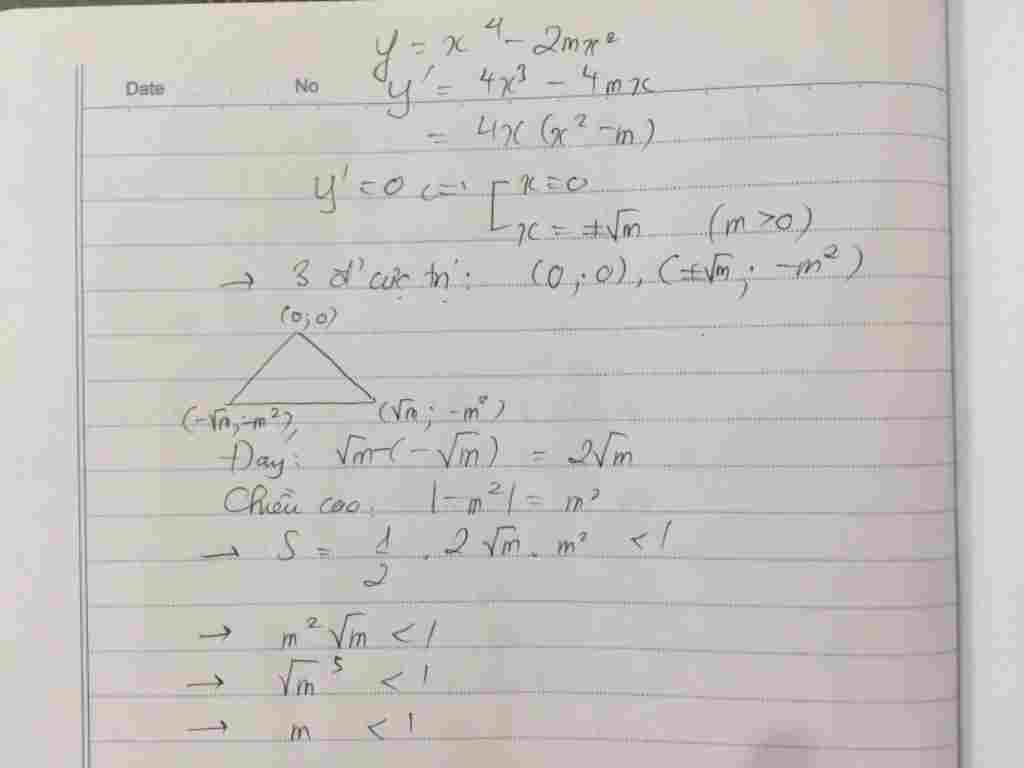 y = x⁴ - 2mx²
Date No
y' = 4x³ - 4mx
= 4x (x² - m)
y' = 0 <=> [ x = 0
x = ±√m (m > 0)
→ 3 đ' cực trị: (0; 0), (±√m; -m²)
(0; 0)
(-√m; -m²), (√m; -m²)
Đáy: √m - (-√m) = 2√m
Chiều cao: |-m²| = m²
→ S = 1/2 . 2√m . m² < 1
→ m²√m < 1
→ √m⁵ < 1
→ m < 1